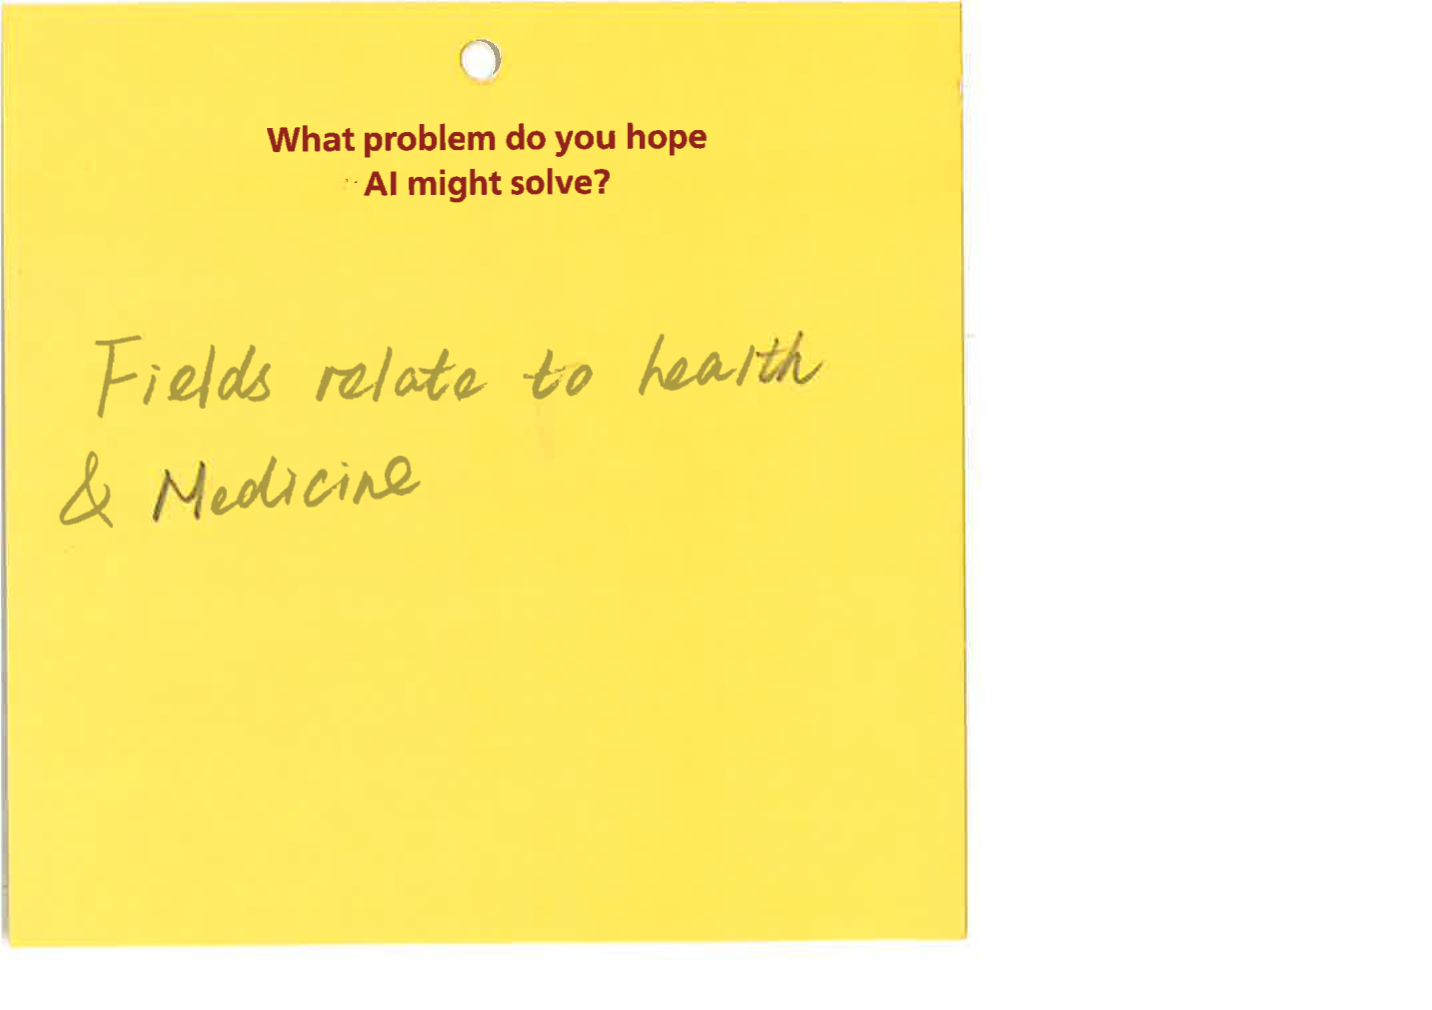 What problem do you hope
AI might solve?
Fields relate to health
& Medicine